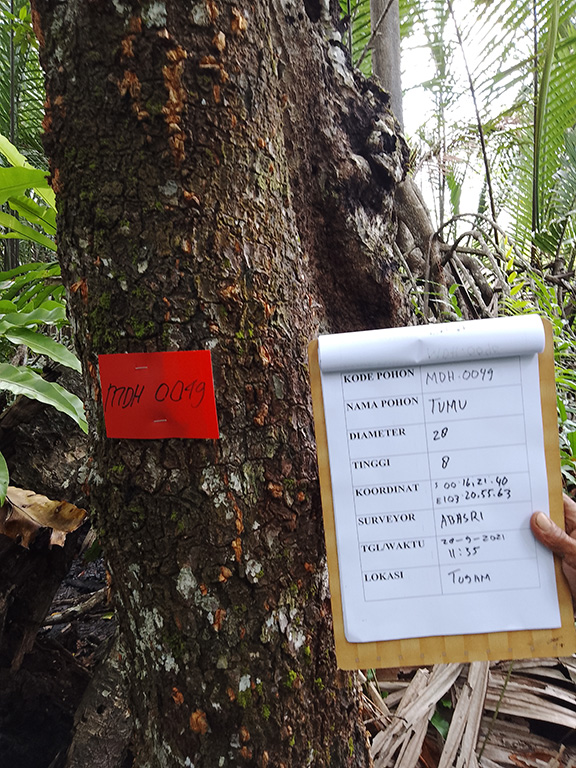 MDH 0049
KODE POHON MDH-0049
NAMA POHON TUMU
DIAMETER 28
TINGGI 8
KOORDINAT S 00.16.21.40
E103.20.55.63
SURVEYOR ADASRI
TGL/WAKTU 28-9-2021
11:35
LOKASI